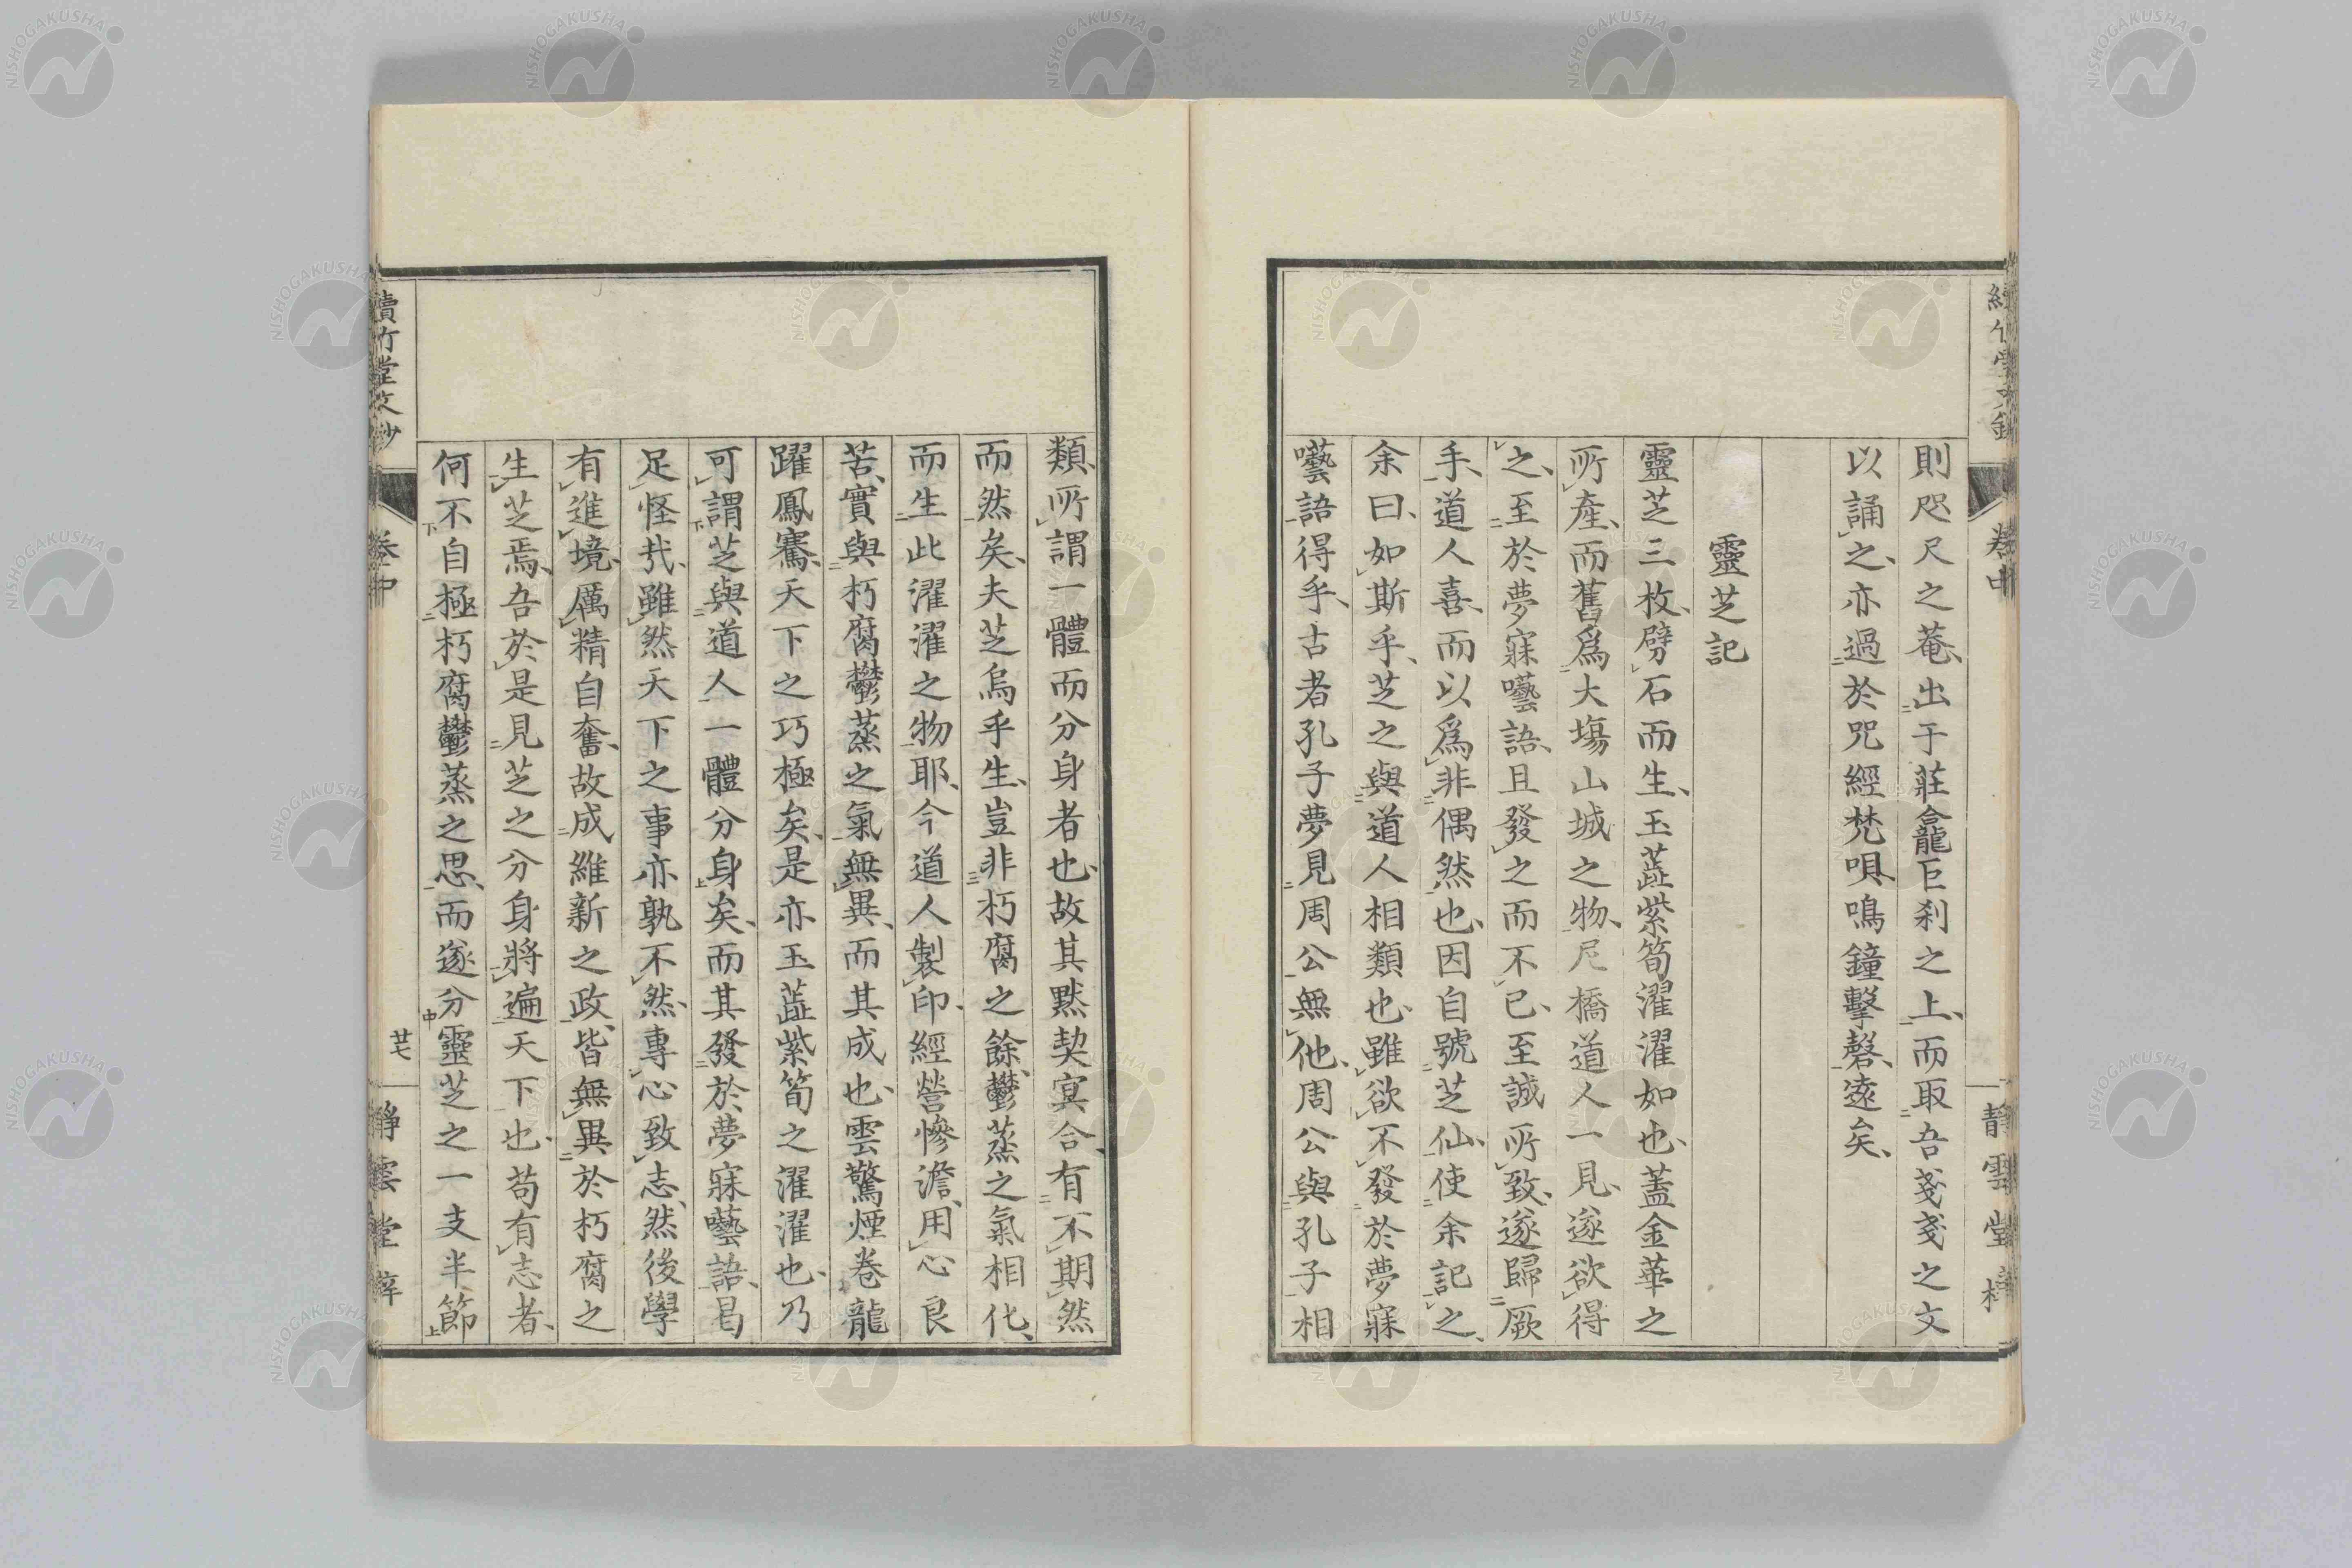 則咫尺之菴、出于莊龕巨刹之上、而取吾戔戔之文
以誦之、亦過於咒經梵唄、鳴鐘擊磬、遠矣、
靈芝記
靈芝三枚、劈石而生、玉蕋紫筍濯濯如也、蓋金華之
所產、而舊爲大塲山城之物、尼橋道人一見、遂欲得
之、至於夢寐囈語、且發之而不已、至誠所致、遂歸厥
手、道人喜、而以爲非偶然也、因自號芝仙、使余記之、
余曰、如斯乎、芝之與道人相類也、雖欲不發於夢寐
囈語得乎、古者孔子夢見周公無他、周公與孔子相
續竹堂文鈔
卷中
靜雲堂梓
類、所謂一體而分身者也、故其默契冥合、有不期然
而然矣、夫芝烏乎生、豈非朽腐之餘、鬱蒸之氣相化、
而生此濯濯之物耶、今道人製印、經營慘澹、用心良
苦、實與朽腐鬱蒸之氣無異、而其成也、雲驚煙卷龍
躍鳳騫、天下之巧極矣、是亦玉蕋紫筍之濯濯也、乃
可謂芝與道人一體分身矣、而其發於夢寐囈語、曷
足怪哉、雖然天下之事亦孰不然、專心致志、然後學
有進境、厲精自奮、故成維新之政、皆無異於朽腐之
生芝焉、吾於是見芝之分身將遍天下也、苟有志者、
何不自極朽腐鬱蒸之思、而遂分靈芝之一支半節
續竹堂文鈔
卷中
廿七
靜雲堂梓
NISHOGAKUSHA